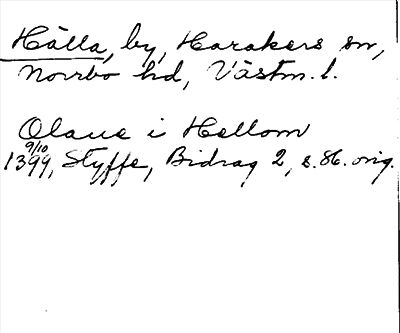 Hälla, by, Harakers sn,
Norrbo hd, Västm. l.
Olaue i Hellom
9/10
1399, Styffe, Bidrag 2, s. 86. orig.